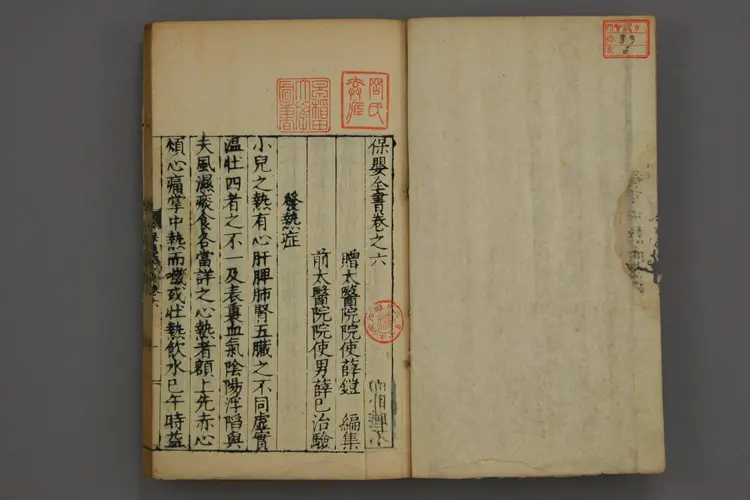 保嬰全書卷之六
贈太醫院院使薛鎧 編集
前太醫院院使男薛已治驗
發熱症
小兒之熱有心肝脾肺腎五臟之不同虛實
温壯四者之不一及表裏血氣陰陽浮陷與
夫風濕痰食各當詳之心熱者額上先赤心
煩心痛掌中熱而噦或壯熱飲水巳午時益
早稲田大學圖書